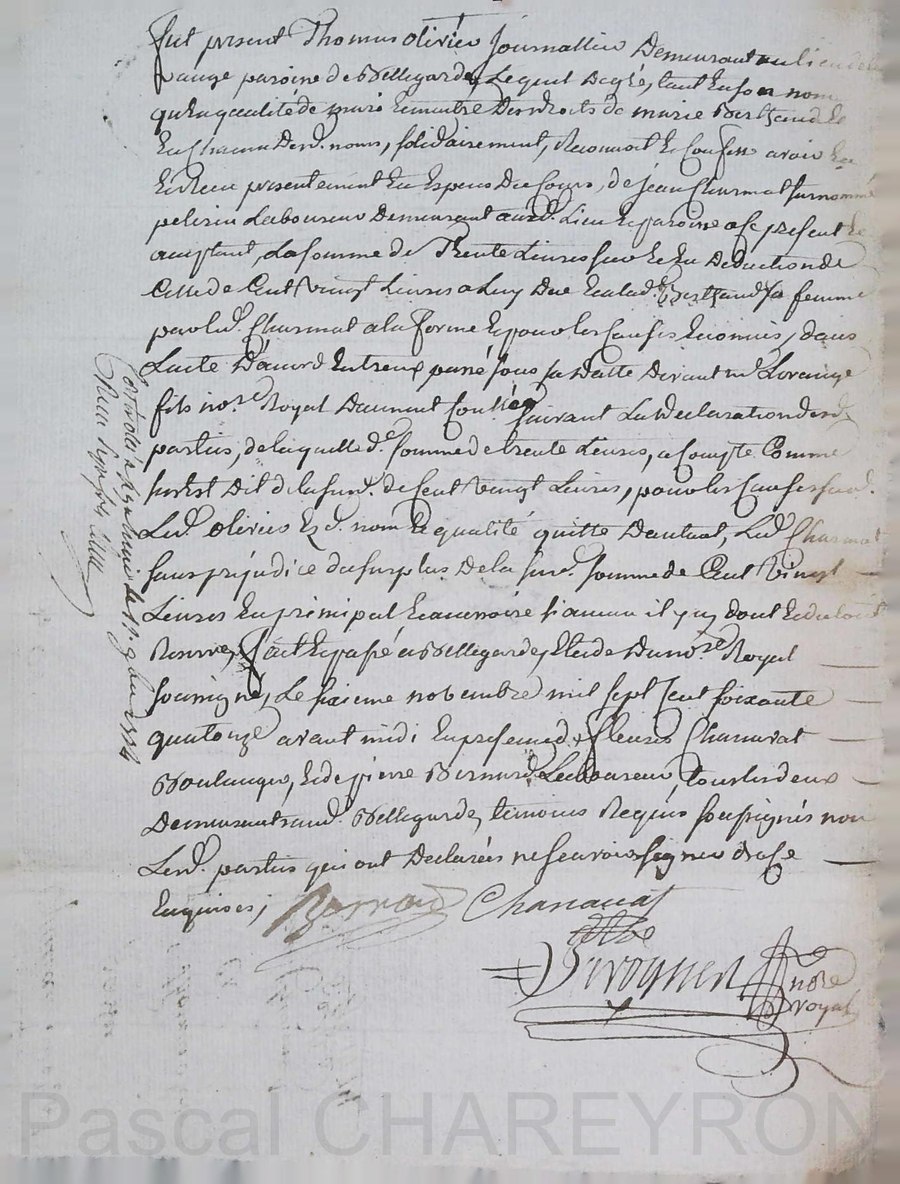 fut present Thomas olivier Journallier Demeurant au lieu de
auge paroisse de Bellegarde, Lequel De gré, tant En son nom
qu'En qualité de mari Et maitre Des droits de marie Bertrand Et
En Chacun Desd. noms, solidairement, Reconnoit Et Confesse avoir Eu
Et Reçu presentement En Especes Du Cours, de jean Charmat surnommé
pelerin Laboureur Demeurant aud. Lieu Et paroisse a ce present Et
acceptant, La somme de Trente Livres sur Et En Deduction de
Celle de Cent Vingt Livres a Luy Due Et a lad. Bertrand sa femme
par led. Charmat a la forme Et pour les Causes Enoncées, dans
L'acte D'acord Entr'eux passé sous sa Datte Devant me Lorange
fils nore Royal Daumont suivant La Declaration desd.
parties, de laquelle de. somme de trente Livres, a Compte Comme
sus Est Dit de la sus d. de Cent Vingt Livres, pour les Causes susd.
Led. olivier Ezd. nom Et qualité quitte D'autant, Led. Charmat
sans préjudice du surplus De la sus d. somme de Cent Vingt
Livres En principal Et accessoire si aucun il y a, dont Et du tout
Reserve, fait Et passé a Bellegarde, Etude Du nore Royal
soussigné, Le sixieme novembre mil sept Cent soixante
quatorze avant midi En presence de fleury Chanavat
Boulanger, Et de pierre Bernard Laboureur, tous les deux
Demeurant aud. Bellegarde, temoins Requis soussignés non
Lesd. parties qui ont Declarées ne sçavoir signer de ce
Enquises;
Bernard Chanavat
nore
royal
Pascal CHAREYRON